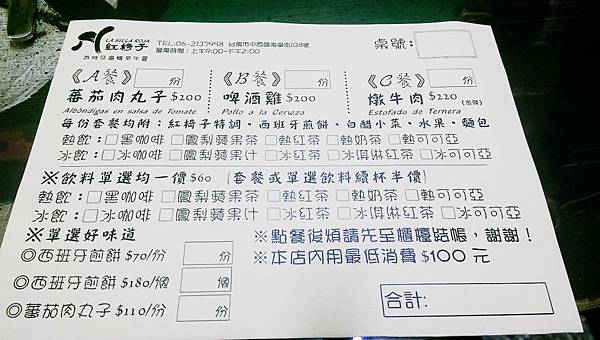 LA SILLA ROJA
紅椅子
西班牙農橋早午餐
TEL:06-2137958 台南市中西區南寧街108號
營業時間:上午9:00-下午2:00
桌號:
《A餐》 份 《B餐》 份 《C餐》 份
蕃茄肉丸子$200 啤酒雞$200 燉牛肉$220
Albóndigas en salsa de Tomate Pollo a la Cerveza Estofado de Ternera
每份套餐均附:紅椅子特調、西班牙煎餅、白醋小菜、水果、麵包
熱飲:□黑咖啡 □鳳梨蘋果茶 □熱紅茶 □熱奶茶 □熱可可亞
冰飲:□冰咖啡 □鳳梨蘋果汁 □冰紅茶 □冰淇淋紅茶 □冰可可亞
※飲料單選均一價$60 (套餐或單選飲料續杯半價)
熱飲:□黑咖啡 □鳳梨蘋果茶 □熱紅茶 □熱奶茶 □熱可可亞
冰飲:□冰咖啡 □鳳梨蘋果汁 □冰紅茶 □冰淇淋紅茶 □冰可可亞
※單選好味道
◎西班牙煎餅$70/份 份
◎西班牙煎餅$180/個 個
◎蕃茄肉丸子$110/份 份
※點餐後煩請先至櫃檯結帳,謝謝!
※本店內用最低消費$100元
合計: